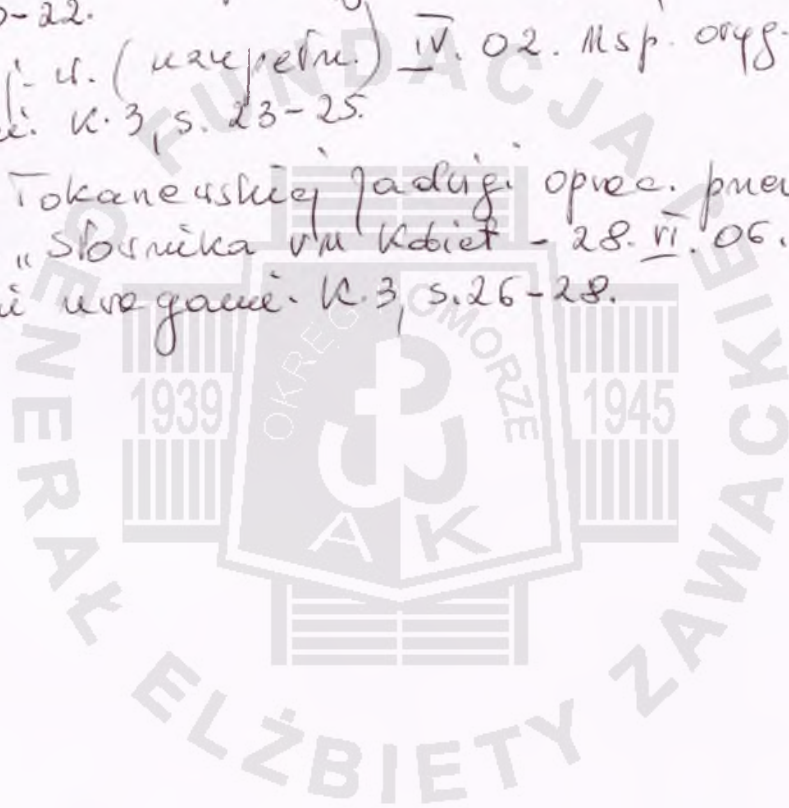 -22.
j. w. (uzupełn.) IV. 02. Msp. oryg.
K. 3, s. 23-25.
Tokarzewskiej Jadwigi oprac.
"Słownika VM Kobiet - 28. VI. 06.
uwagami. K. 3, s. 26-28.
FUNDACJA
GENERAŁ ELŻBIETY ZAWACKIEJ
OKRĘG POMORZE
1939
1945
AK